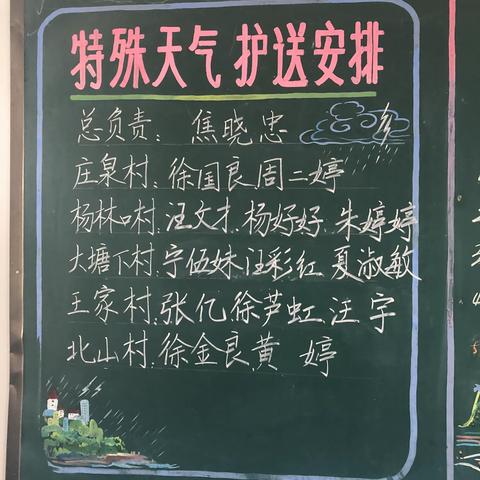 特殊天气 护送安排
总负责： 焦晓忠
庄泉村：徐国良周二婷
杨林口村：汪文才 杨好好 朱婷婷
大塘下村：宁伍妹汪彩红 夏淑敏
王家村：张亿徐芦虹汪宇
北山村：徐金良黄 婷